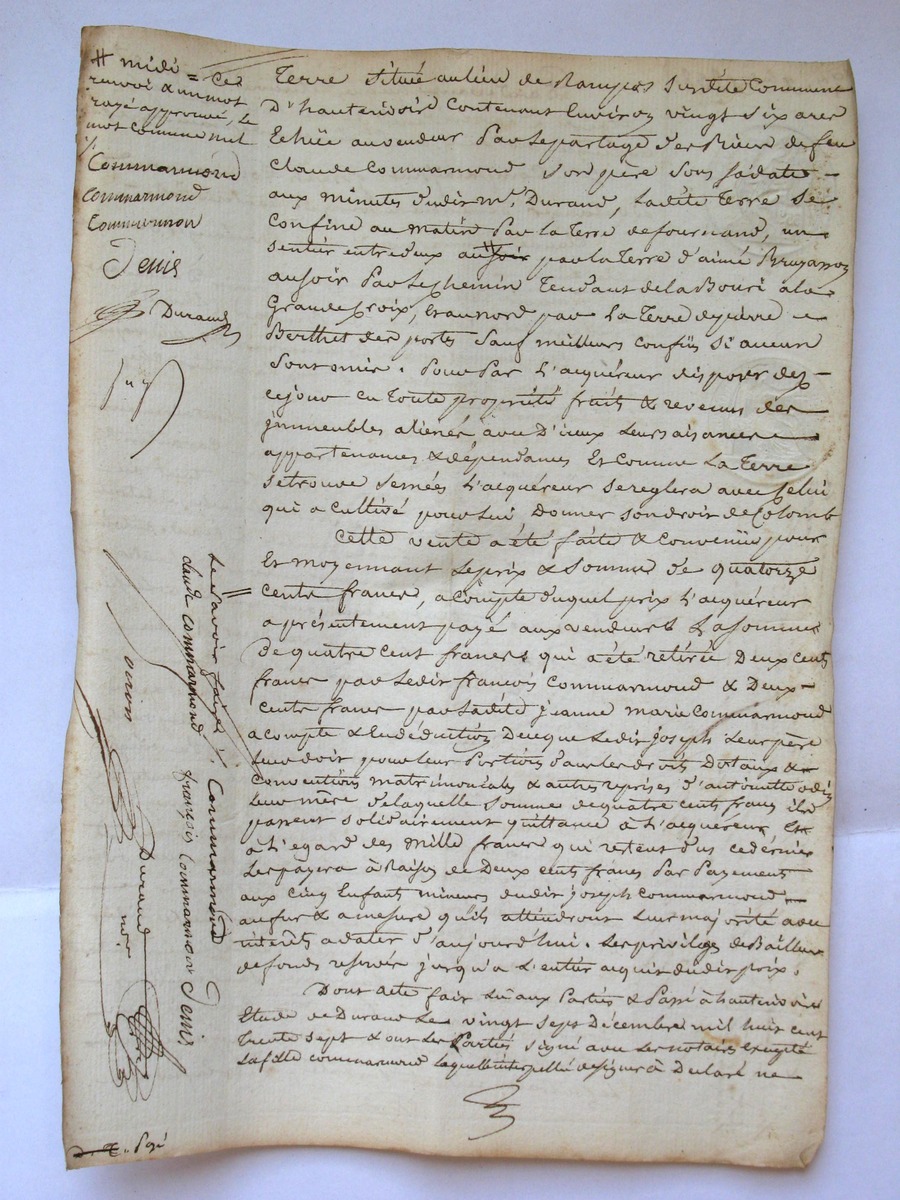 # midi = Ces
renvoi & un mot
rayé approuvé, le
mot comme nul
Commarmond
Commarmond
Commarmon
Denis
Durand
Terre située au lieu de Rampos susdite Commune
D'hauterivoire Contenant Environ vingt six ares
Echüe au vendeur Par le partage des Biens de feu
Claude Commarmond son père sous sa date
aux minutes dudit Me. Durand, Ladite Terre se
Confine au matin Par la Terre de fournand, un
sentier entre deux au soir par la Terre d'aimé Bruyassoz
au soir Par le Chemin Tendant de la Bouri à la
Grande Croix, Et au nord par la Terre de pierre
Berthet des portes Sauf meilleurs Confins Si aucun
Sont omis. Pour Par l'acquéreur disposer dez
ce jour en Toute propriété fruits & revenus des
jmmeubles alienés avec D'iceux leurs aisances
appartenances & dépendances Et Comme La Terre
se trouve semées l'acquéreur se reglera avec Celui
qui a Cultivé pour lui Donner son droit de Colomb
Cette vente a été faite & Convenüe pour
Et moyennant Le prix & Somme de quatorze
Cents francs, a Compte duquel prix l'acquéreur
a présentement payé aux vendeurs La somme
De quatre Cent francs qui a été retirée Deux Cent
francs par Ledit françois Commarmond & Deux
Cents francs par Ladite jeanne marie Commarmond
a compte & En déduction De ce que Ledit joseph Leur père
Leur doit pour leur Portions dans les droits Dotaux &
Conventions matrimoniales & autres reprises d'antoinette
Leur mère De laquelle somme de quatre cents francs ils
passent solidairement quittance à l'acquéreur Et
à l'egard des mille francs qui restent dus ce dernier
Les payera à Raison de Deux Cent francs Par Payement
aux Cinq Enfants mineurs dudit joseph Commarmond
au fur & a mesure qu'ils attendront Leur majorité avec
interêts a dater d'aujourd'hui. Les privileges de Bailleur
de fonds reservés jusqu'a L'entier acquit dudit prix.
Dont acte fait Lu aux Parties & Passé à hauterivoire
Etude de Durand Le vingt Sept Décembre mil huit cent
Trente sept & ont Les Parties signé avec Les notaires Excepté
La fille commarmond Laquelle interpellée de signer a Déclaré ne
Le Savoir faire. Commarmond
claude commarmond françois Commarmon Denis
Durand
nre